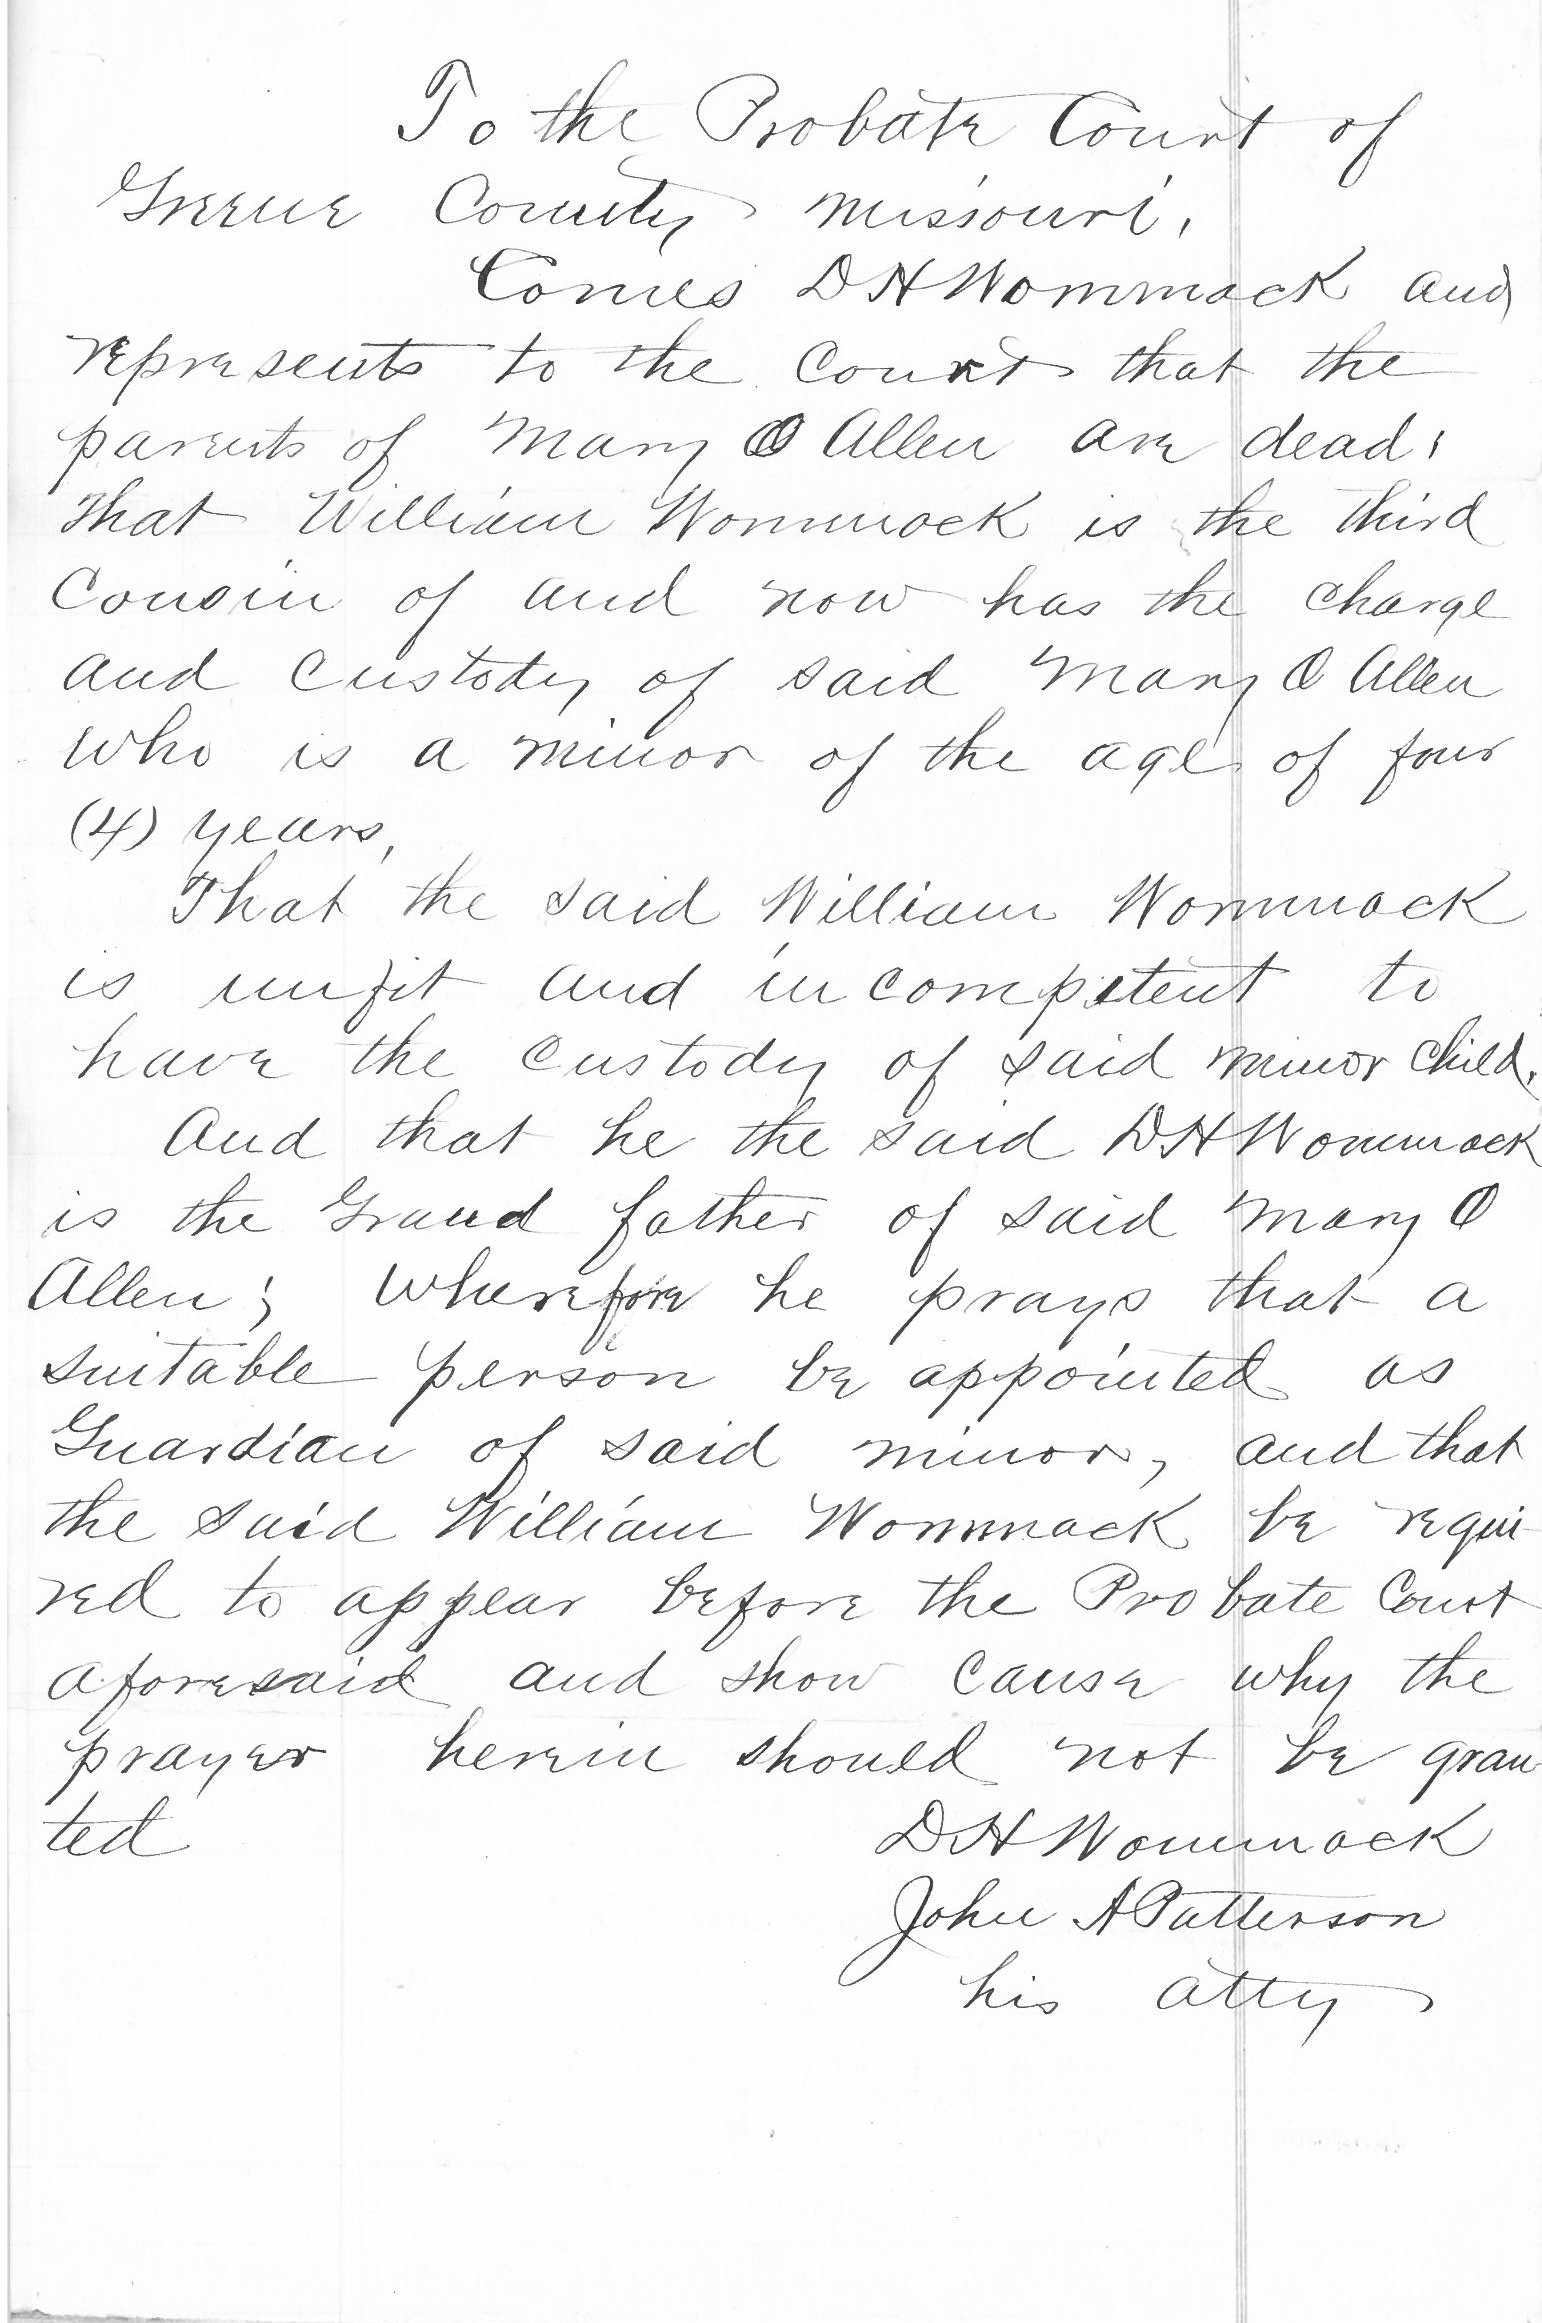 To the Probate Court of
Greene County Missouri.
Comes D H Wommack and
represents to the Court that the
parents of Mary O Allen are dead;
That William Wommack is the third
Cousin of and now has the charge
and custody of said Mary O Allen
who is a minor of the age of four
(4) years,
That the said William Wommack
is unfit and incompetent to
have the custody of said minor child.
And that he the said D H Wommack
is the Grand father of said Mary O
Allen; Wherefore he prays that a
suitable person be appointed as
Guardian of said minor, and that
the said William Wommack be requi-
red to appear before the Probate Court
aforesaid and show cause why the
prayer herein should not be gran-
ted
D H Wommack
John A Patterson
his atty